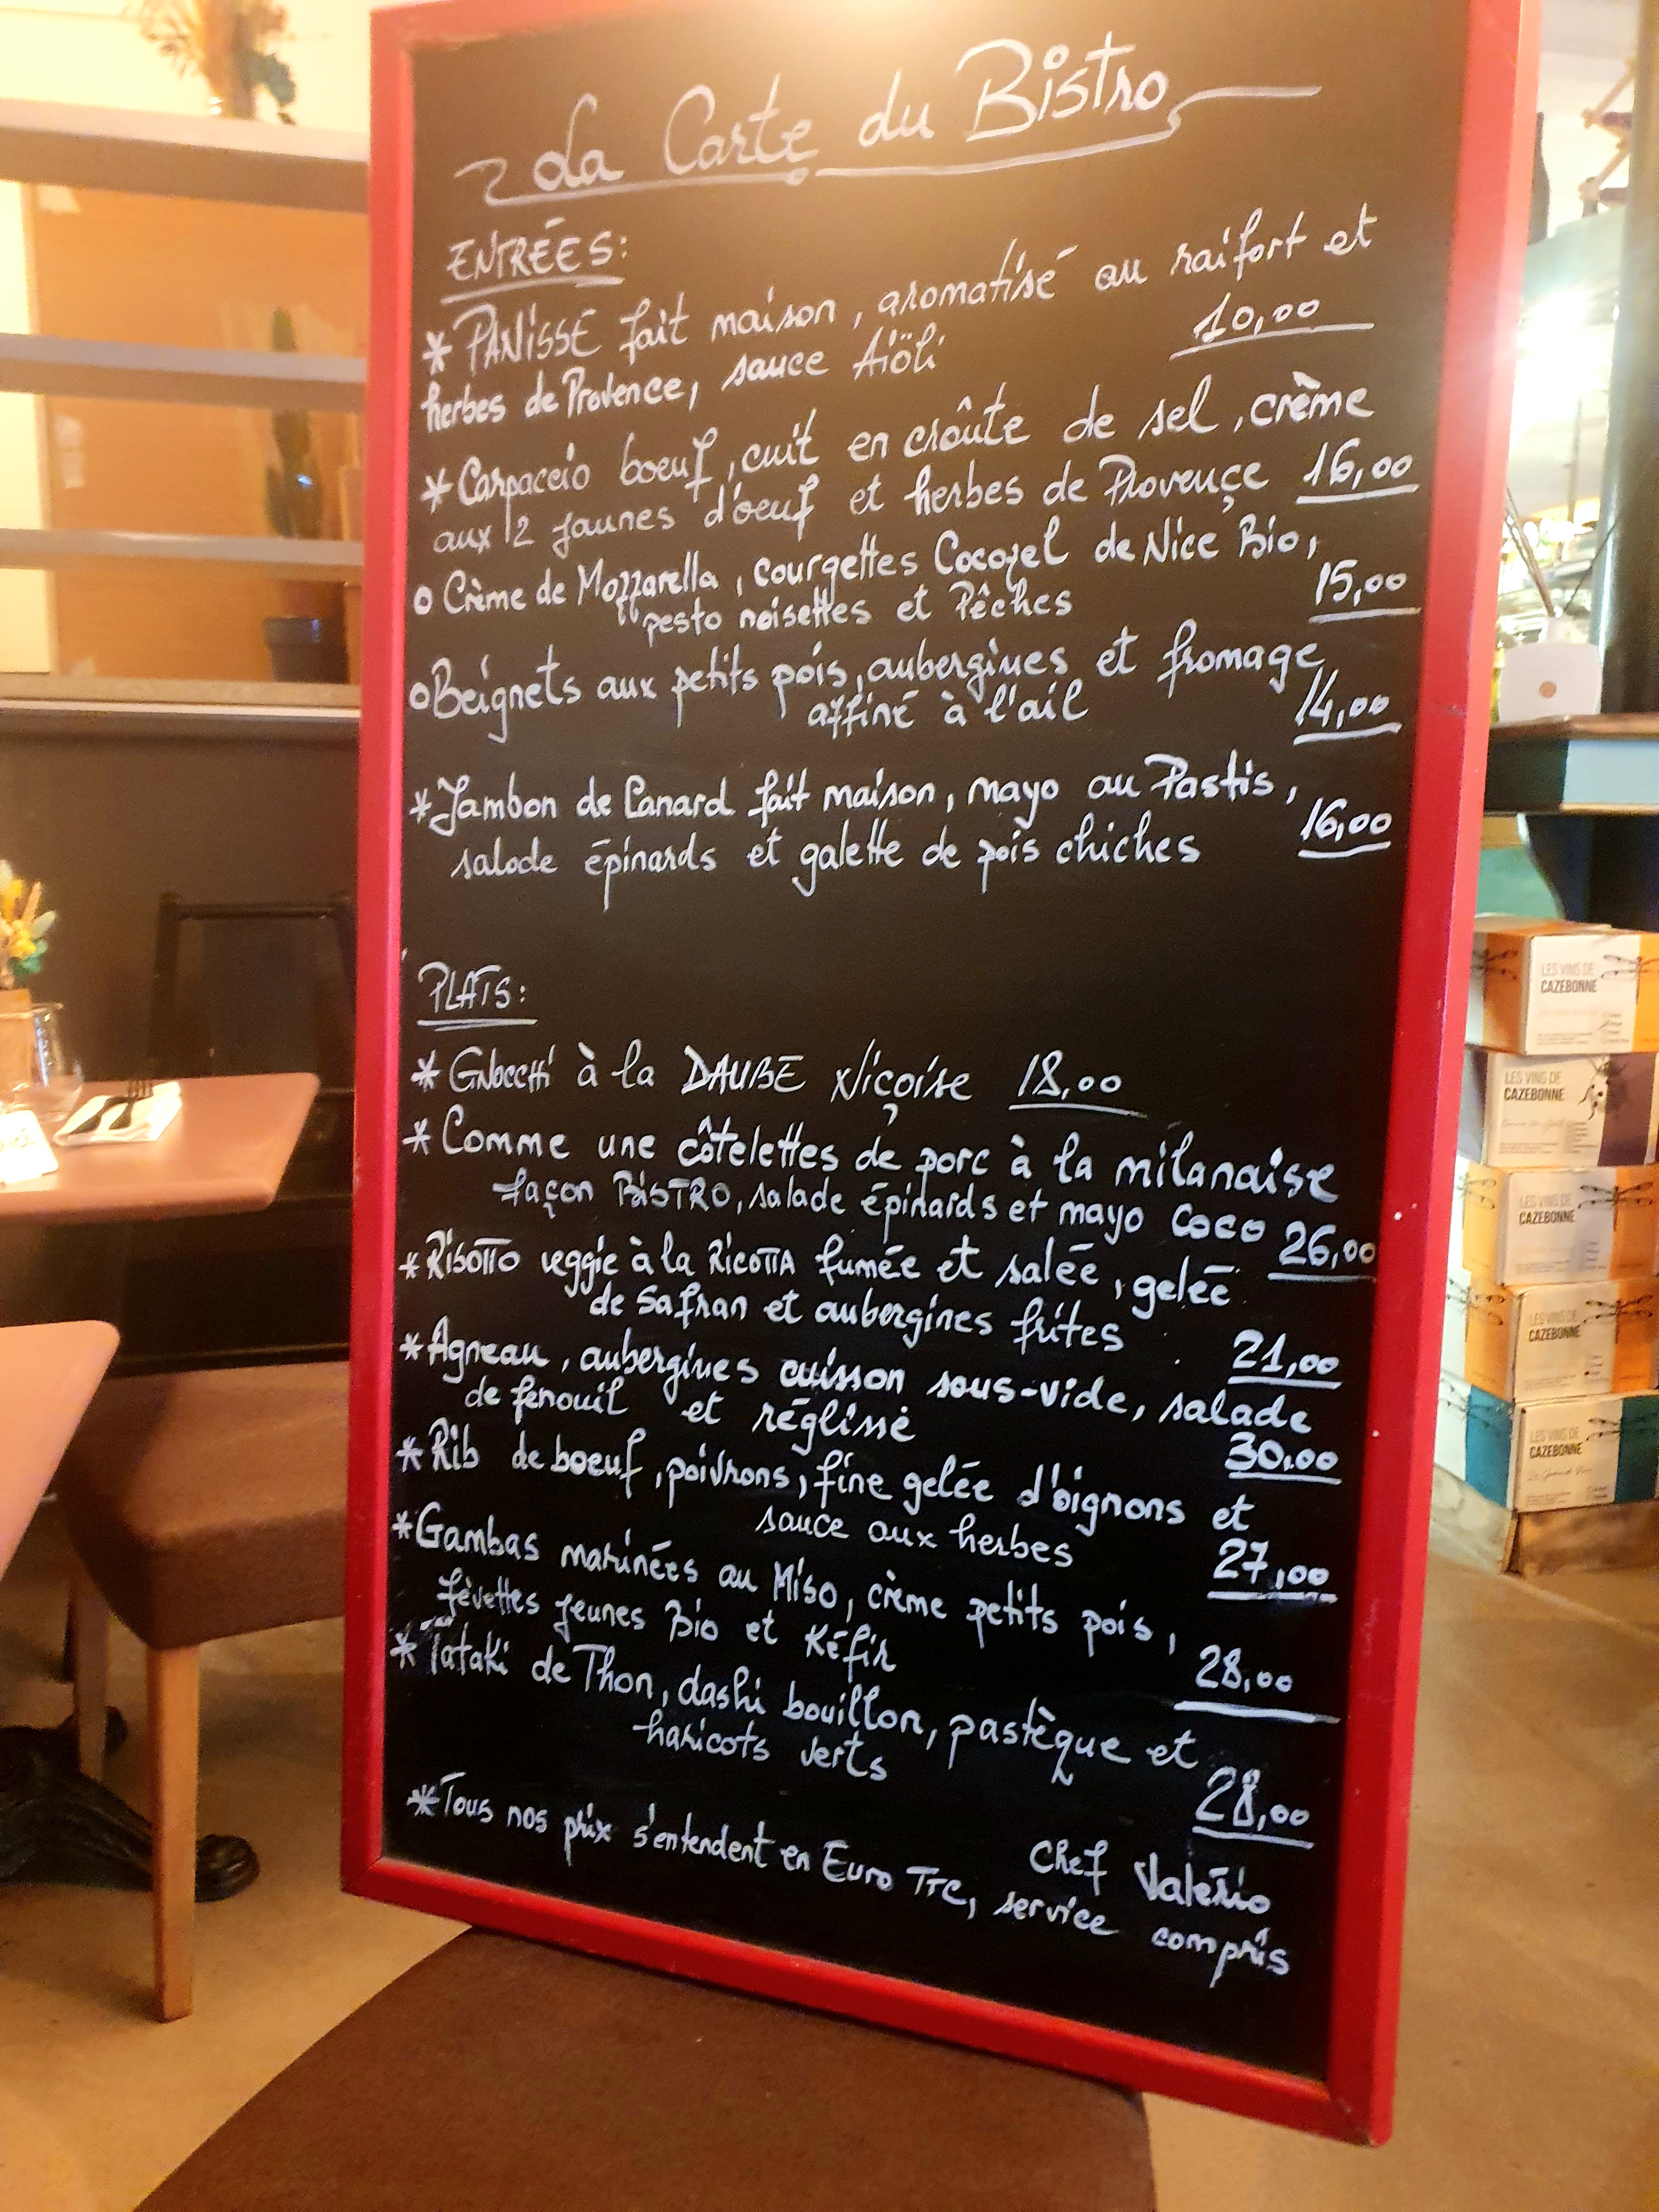 La Carte du Bistro
ENTRÉES:
* PANISSE fait maison, aromatisé au raifort et
herbes de Provence, sauce Aïöli 10,00
* Carpaccio boeuf, cuit en croûte de sel, crème
aux 12 jaunes d'oeuf et herbes de Provençe 16,00
o Crème de Mozzarella, courgettes Cocozel de Nice Bio,
pesto noisettes et Pêches 15,00
o Beignets aux petits pois, aubergines et fromage
affiné à l'ail 14,00
* Jambon de Canard fait maison, mayo au Pastis,
salade épinards et galette de pois chiches 16,00
PLATS:
* GNoccHi à la DAUBE Niçoise 18,00
* Comme une côtelettes de porc à la milanaise
façon BISTRO, salade épinards et mayo coco 26,00
* RISOTTO veggie à la RICOTTA fumée et salée, gelée
de safran et aubergines frites 21,00
* Agneau, aubergines cuisson sous-vide, salade
de fenouil et réglissé 30,00
* Rib de boeuf, poivrons, fine gelée d'oignons et
sauce aux herbes 27,00
* Gambas marinées au Miso, crème petits pois,
févettes jeunes Bio et Kéfir 28,00
* Tataki de Thon, dashi bouillon, pastèque et
haricots verts 28,00
Chef Valerio
* Tous nos prix s'entendent en Euro TTC, service compris
LES VINS DE
CAZEBONNE
LES VINS DE
CAZEBONNE
LES VINS DE
CAZEBONNE
LES VINS DE
CAZEBONNE
LES VINS DE
CAZEBONNE